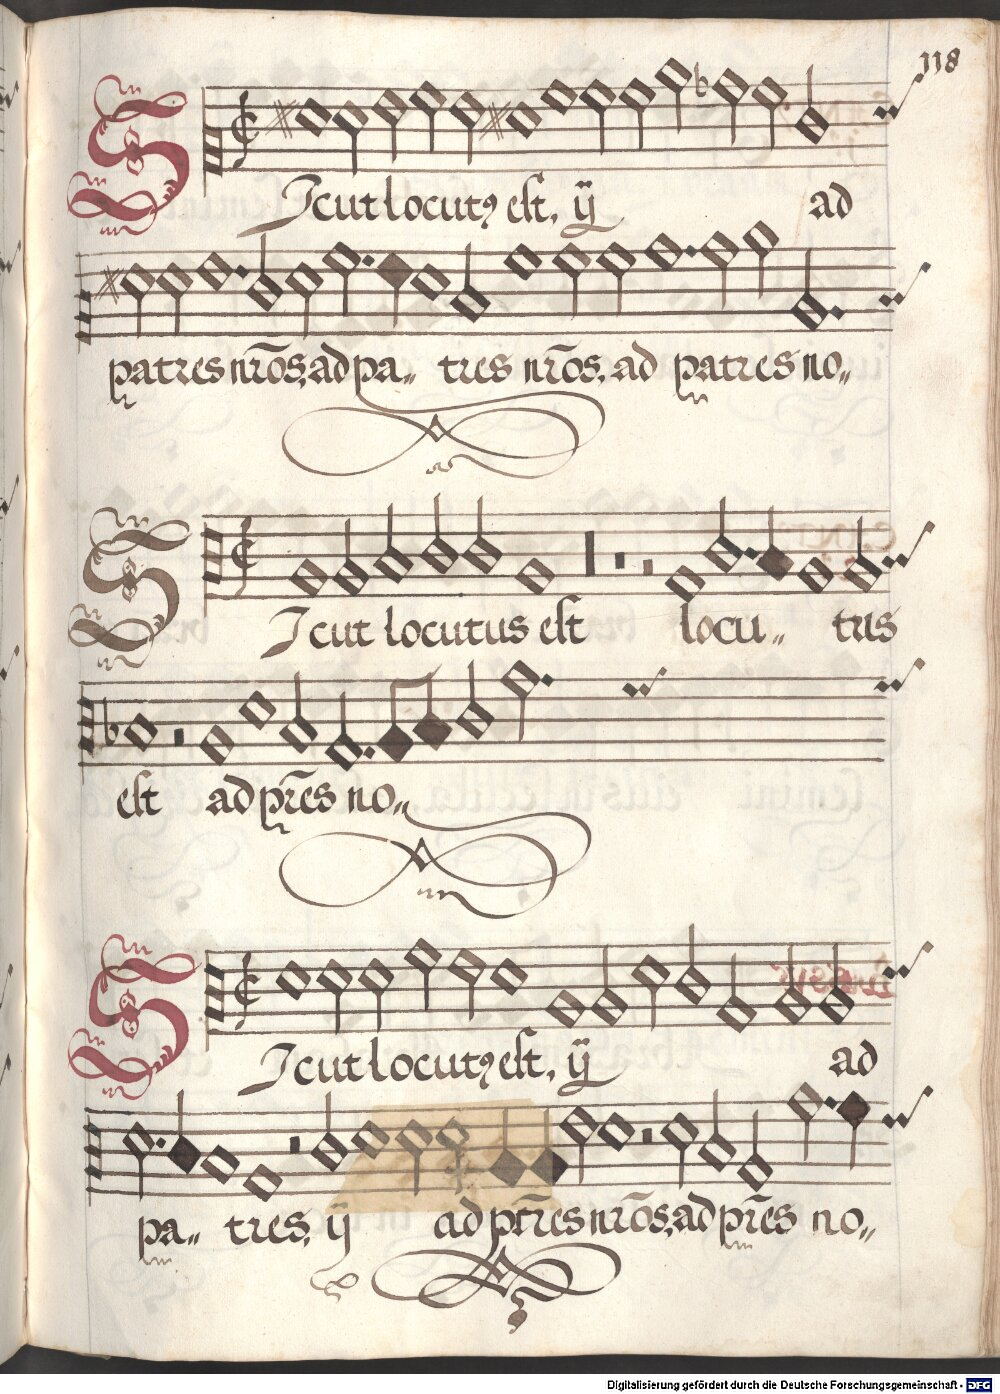 118
Sicut locutꝰ est, ij ad
patres nr̄os, ad pa- tres nr̄os, ad patres no-
Sicut locutus est locu- tus
est ad pr̄es no-
Sicut locutꝰ est, ij ad
pa- tres, ij ad pr̄es nr̄os, ad pr̄es no-
Digitalisierung gefördert durch die Deutsche Forschungsgemeinschaft - DFG